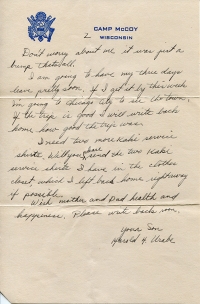 CAMP McCOY
WISCONSIN
2
Don't worry about me it was just a
bump thats all.
I am going to have my three days
leave pretty soon, if I get it by this week
im going to chicago city to see the town,
if the trip is good I will write back
home how good the trip was.
I need two more Kaki service
shirts, Will you please send the two Kaki
service shirts I have in the clothes
closet, which I left back home right away
if possible.
Wish mother and Dad health and
happyness. Please write back soon.
Your Son
Harold H.